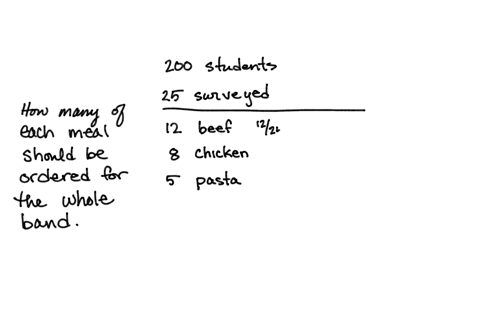 200 students
25 surveyed
12 beef
8 chicken
5 pasta
How many of
each meal
should be
ordered for
the whole
band.